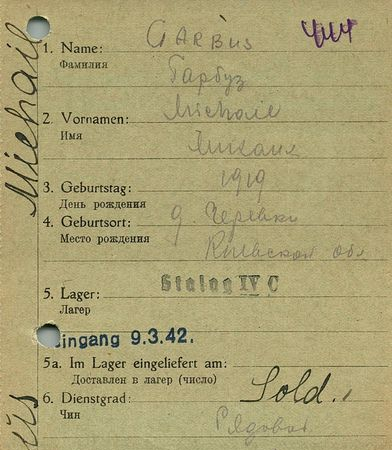 444
1. Name: GARBUS
Фамилия Гарбуз
2. Vornamen: Michail
Имя Михаил
3. Geburtstag: 1919
День рождения
4. Geburtsort: д. Черевки
Место рождения Киевской обл
5. Lager: Stalag IV C
Лагерь
ingang 9.3.42.
5a. Im Lager eingeliefert am:
Доставлен в лагерь (число)
6. Dienstgrad: Sold.
Чин Рядовой
Michail
us